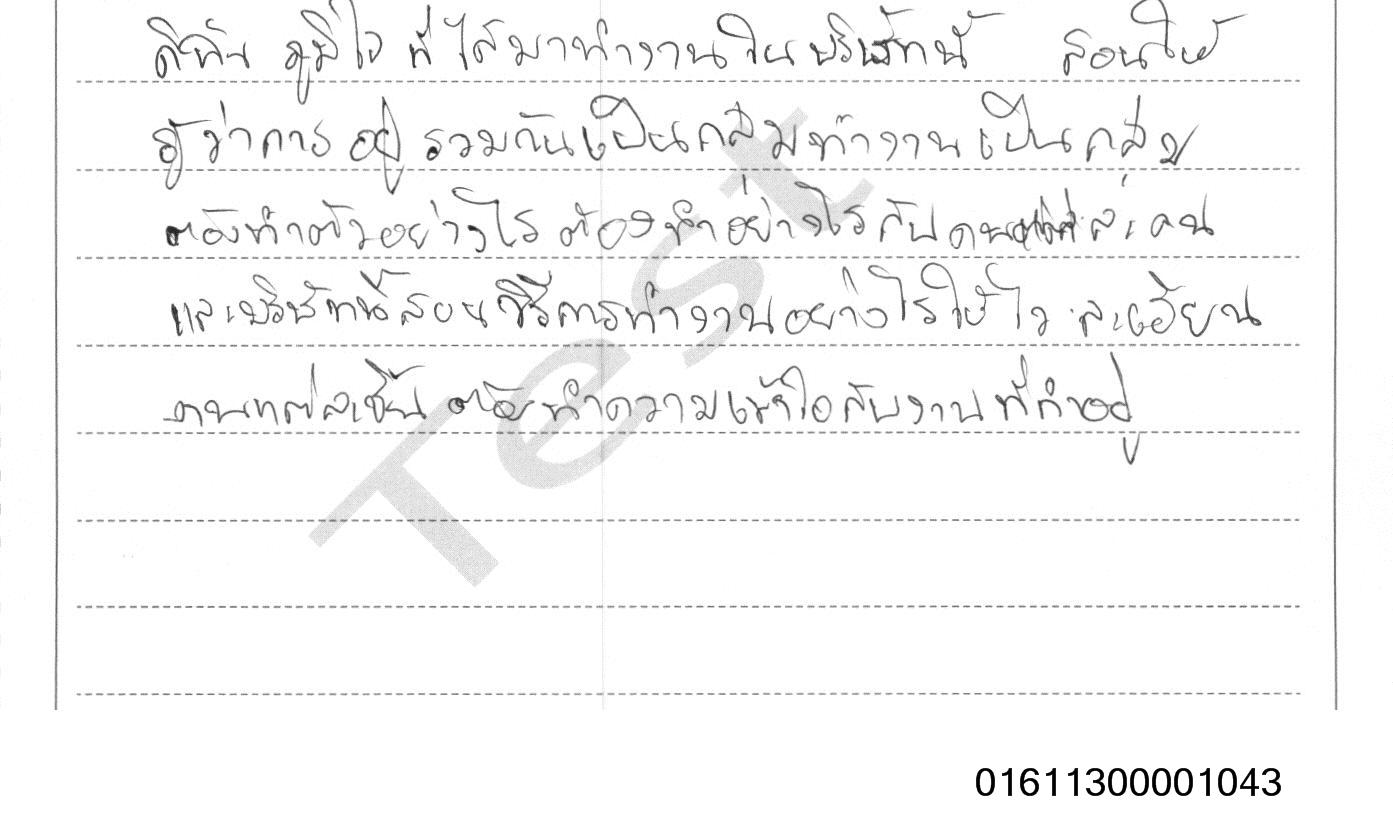 ดิฉัน ภูมิใจ ที่ ได้มาทำงานในบริษัทนี้ สอนให้
รู้ว่าการ อยู่ รวมกันเป็นกลุ่มทำงานเป็นกลุ่ม
ต้องทำตัวอย่างไร ต้องทำอย่างไรกับคน ละคน
และบริษัทนี้สอนวิธีการทำงานอย่างไรให้ไว ละเอียน
งานแต่ละชิ้น ต้องทำความเข้าใจกับงานที่ทำอยู่
Test
01611300001043